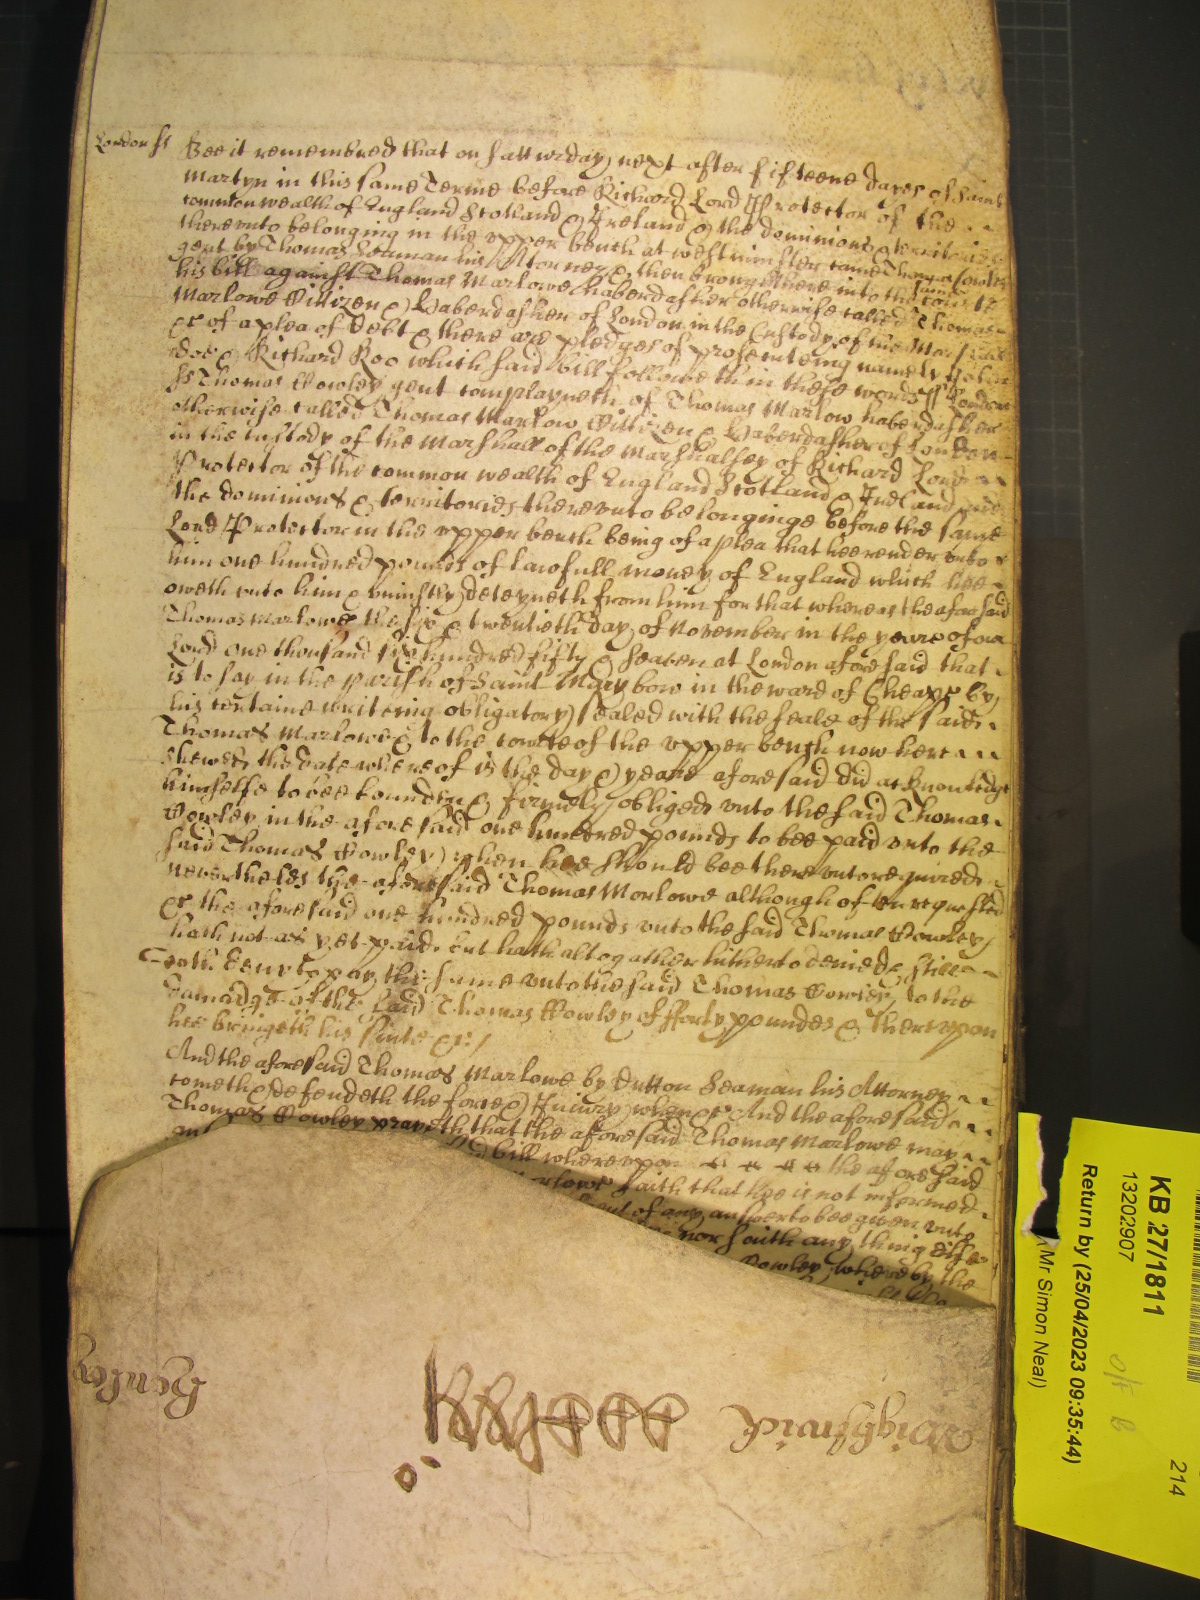 London ss Bee it remembred that on Satturday next after fifteene dayes of Saint
Martyn in this same Terme before Richard Lord Protector of the
common wealth of England Scotland & Ireland & the dominions & territories
therevnto belonging in the vpper bench at westminster came Thomas Cowley
gent by Thomas Seaman his Attorney & then brought here into the Court
his bill against Thomas Marlowe haberdasher otherwise called Thomas
Marlowe Cittizen & Haberdasher of London in the Custody of the Marshall
&c of a plea of debt & there are pledges of prosecuteing namely John
Doe & Richard Roo which said bill followeth in these words ss London
ss Thomas Cowley gent complayneth of Thomas Marlow haberdasher
otherwise called Thomas Marlow Cittizen & Haberdasher of London
in the custody of the Marshall of the Marshalsey of Richard Lord
Protector of the common wealth of England Scotland & Ireland and
the dominions & territories therevnto belonginge before the same
Lord Protector in the vpper bench being of a plea that hee render vnto
him one hundred pounds of lawfull money of England which hee
oweth vnto him & vniustly deteyneth from him for that whereas the aforesaid
Thomas Marlowe the six & twentieth day of November in the yeare of our
Lord one thousand six hundred fifty & seaven at London aforesaid that
is to say in the parish of Saint Mary bow in the ward of Cheape by
his certaine writeing obligatory sealed with the seale of the said
Thomas Marlowe & to the courte of the vpper bench now here
shewed the date whereof is the day & yeare aforesaid did acknowledge
himselfe to bee bounden & firmely obliged vnto the said Thomas
Cowley in the aforesaid one hundred pounds to bee paid vnto the
said Thomas Cowley when hee should bee therevnto required
neverthelès the aforesaid Thomas Morlowe although often requested
&c the aforesaid one hundred pounds vnto the said Thomas Cowley
hath not as yet paid but hath altogather hitherto denied & still
doth deny to pay the same vnto the said Thomas Cowley to the
damadge of the said Thomas Cowley of fforty poundes & therevpon
hee bringeth his suite &c
And the aforesaid Thomas Marlowe by Dutton Seaman his Attorney
cometh & defendeth the force & Iniury when &c And the aforesaid
Thomas Cowley prayeth that the aforesaid Thomas Marlowe may
bill wherevpon the aforesaid
Marlowe saith that hee is not informed
of any answer to bee given vnto
nor saith any thing
Cowley whereby the
Henley
Wightwick
KB 27/1811
13202907
Return by (25/04/2023 09:35:44)
Mr Simon Neal)
214